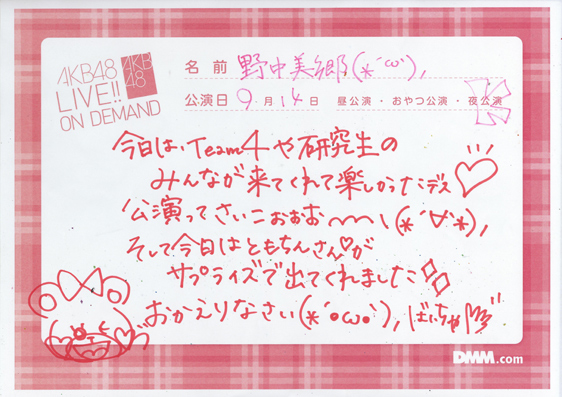 AKB48
LIVE!!
ON DEMAND
AKB
48
名前 野中美郷(*´ω`),
公演日 9月14日 昼公演・おやつ公演・夜公演
今日は、Team4や研究生の
みんなが来てくれて楽しかったデス♡
公演ってさいこおおお〜〜ヽ(*´∀`*),
そして今日はともちんさん♡が
サプライズで出てくれました
おかえりなさい(*´•ω•`), ばいちゃ
DMM.com